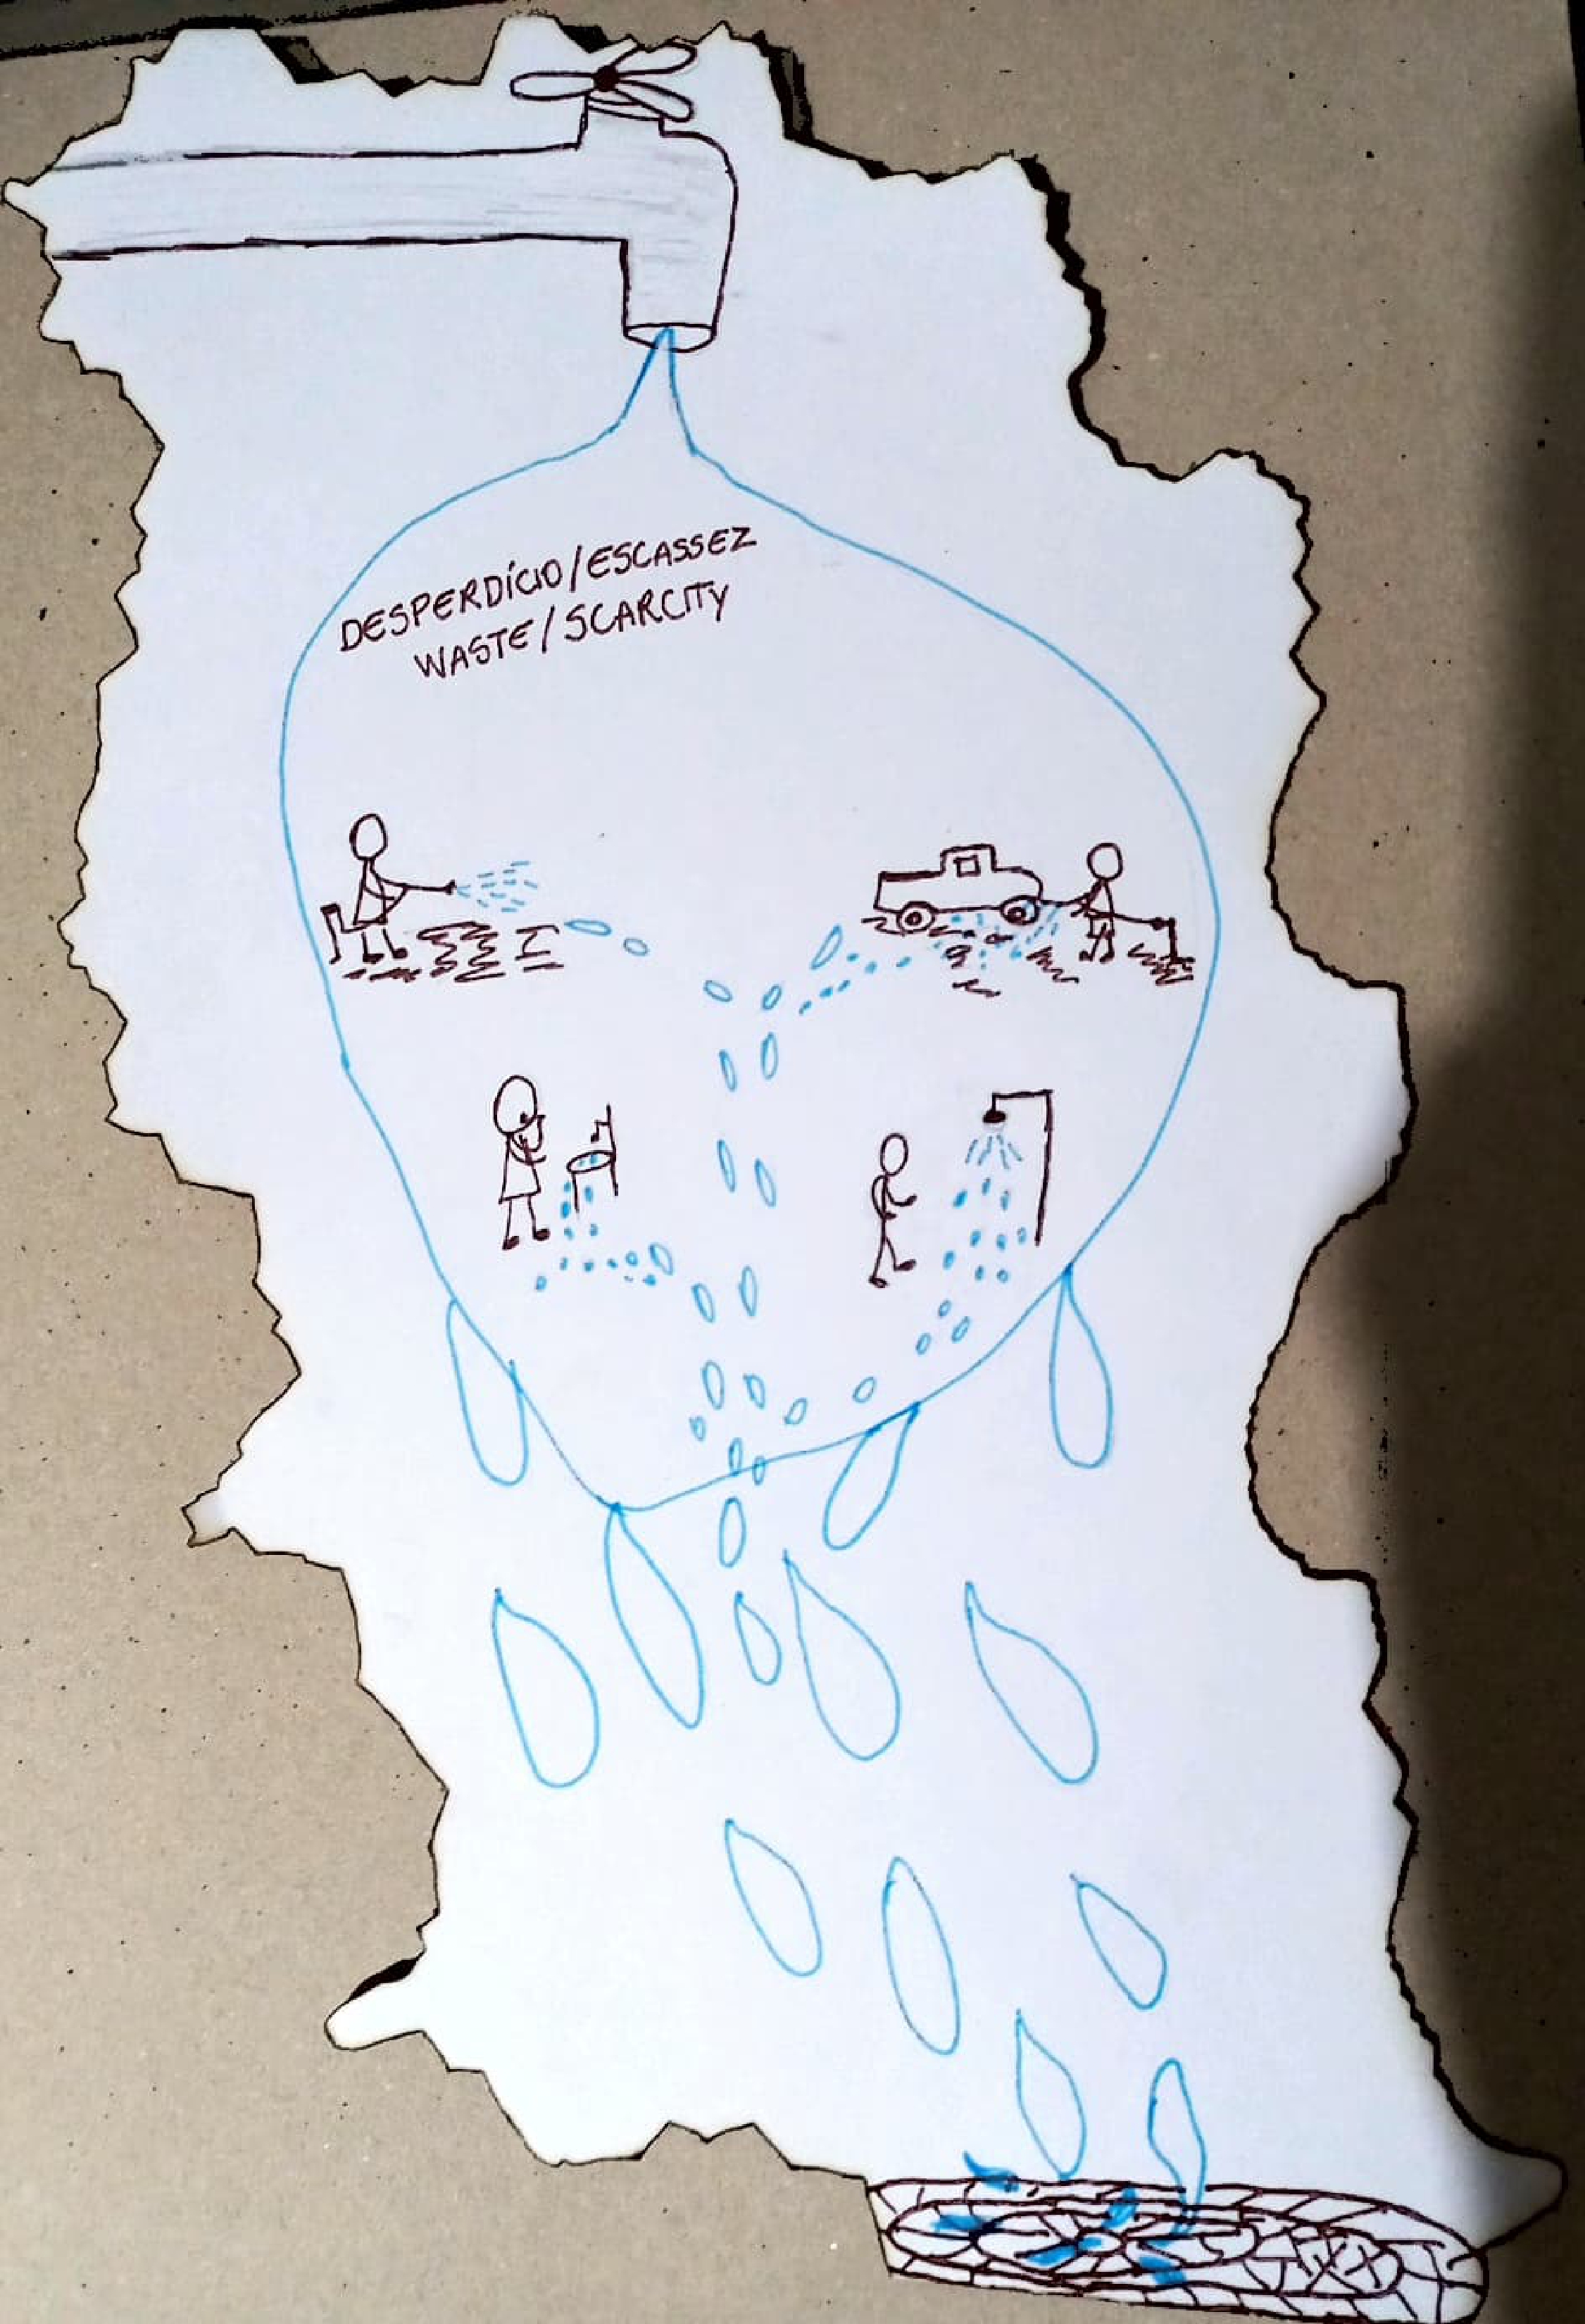 DESPERDÍCIO/ESCASSEZ
WASTE/SCARCITY